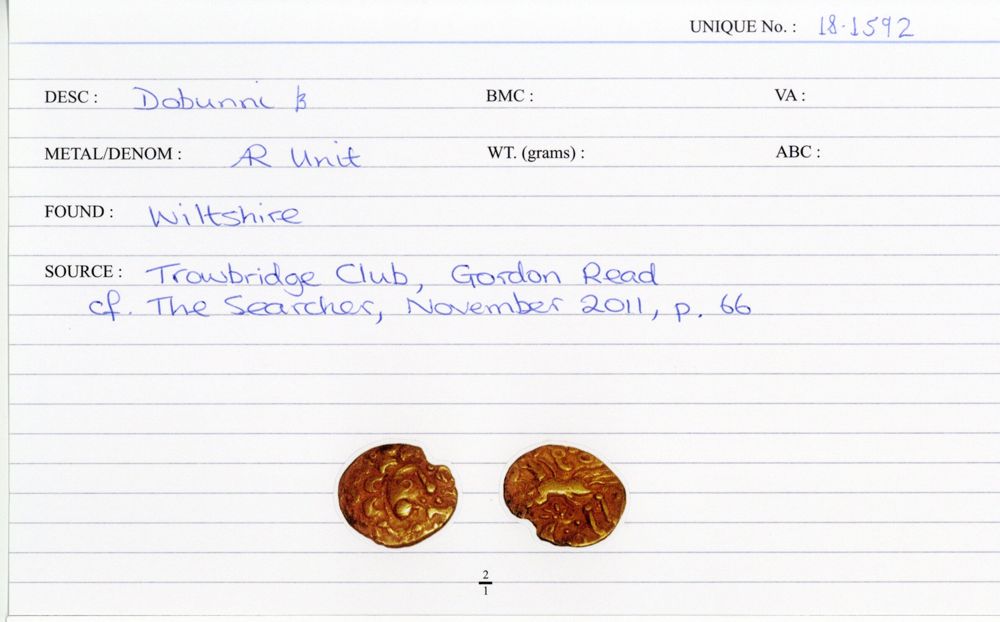 UNIQUE No. : 18-1592
DESC : Dobunni B BMC : VA :
METAL/DENOM : AR Unit WT. (grams) : ABC :
FOUND : Wiltshire
SOURCE : Trowbridge Club, Gordon Read
cf. The Searcher, November 2011, p. 66
2
1